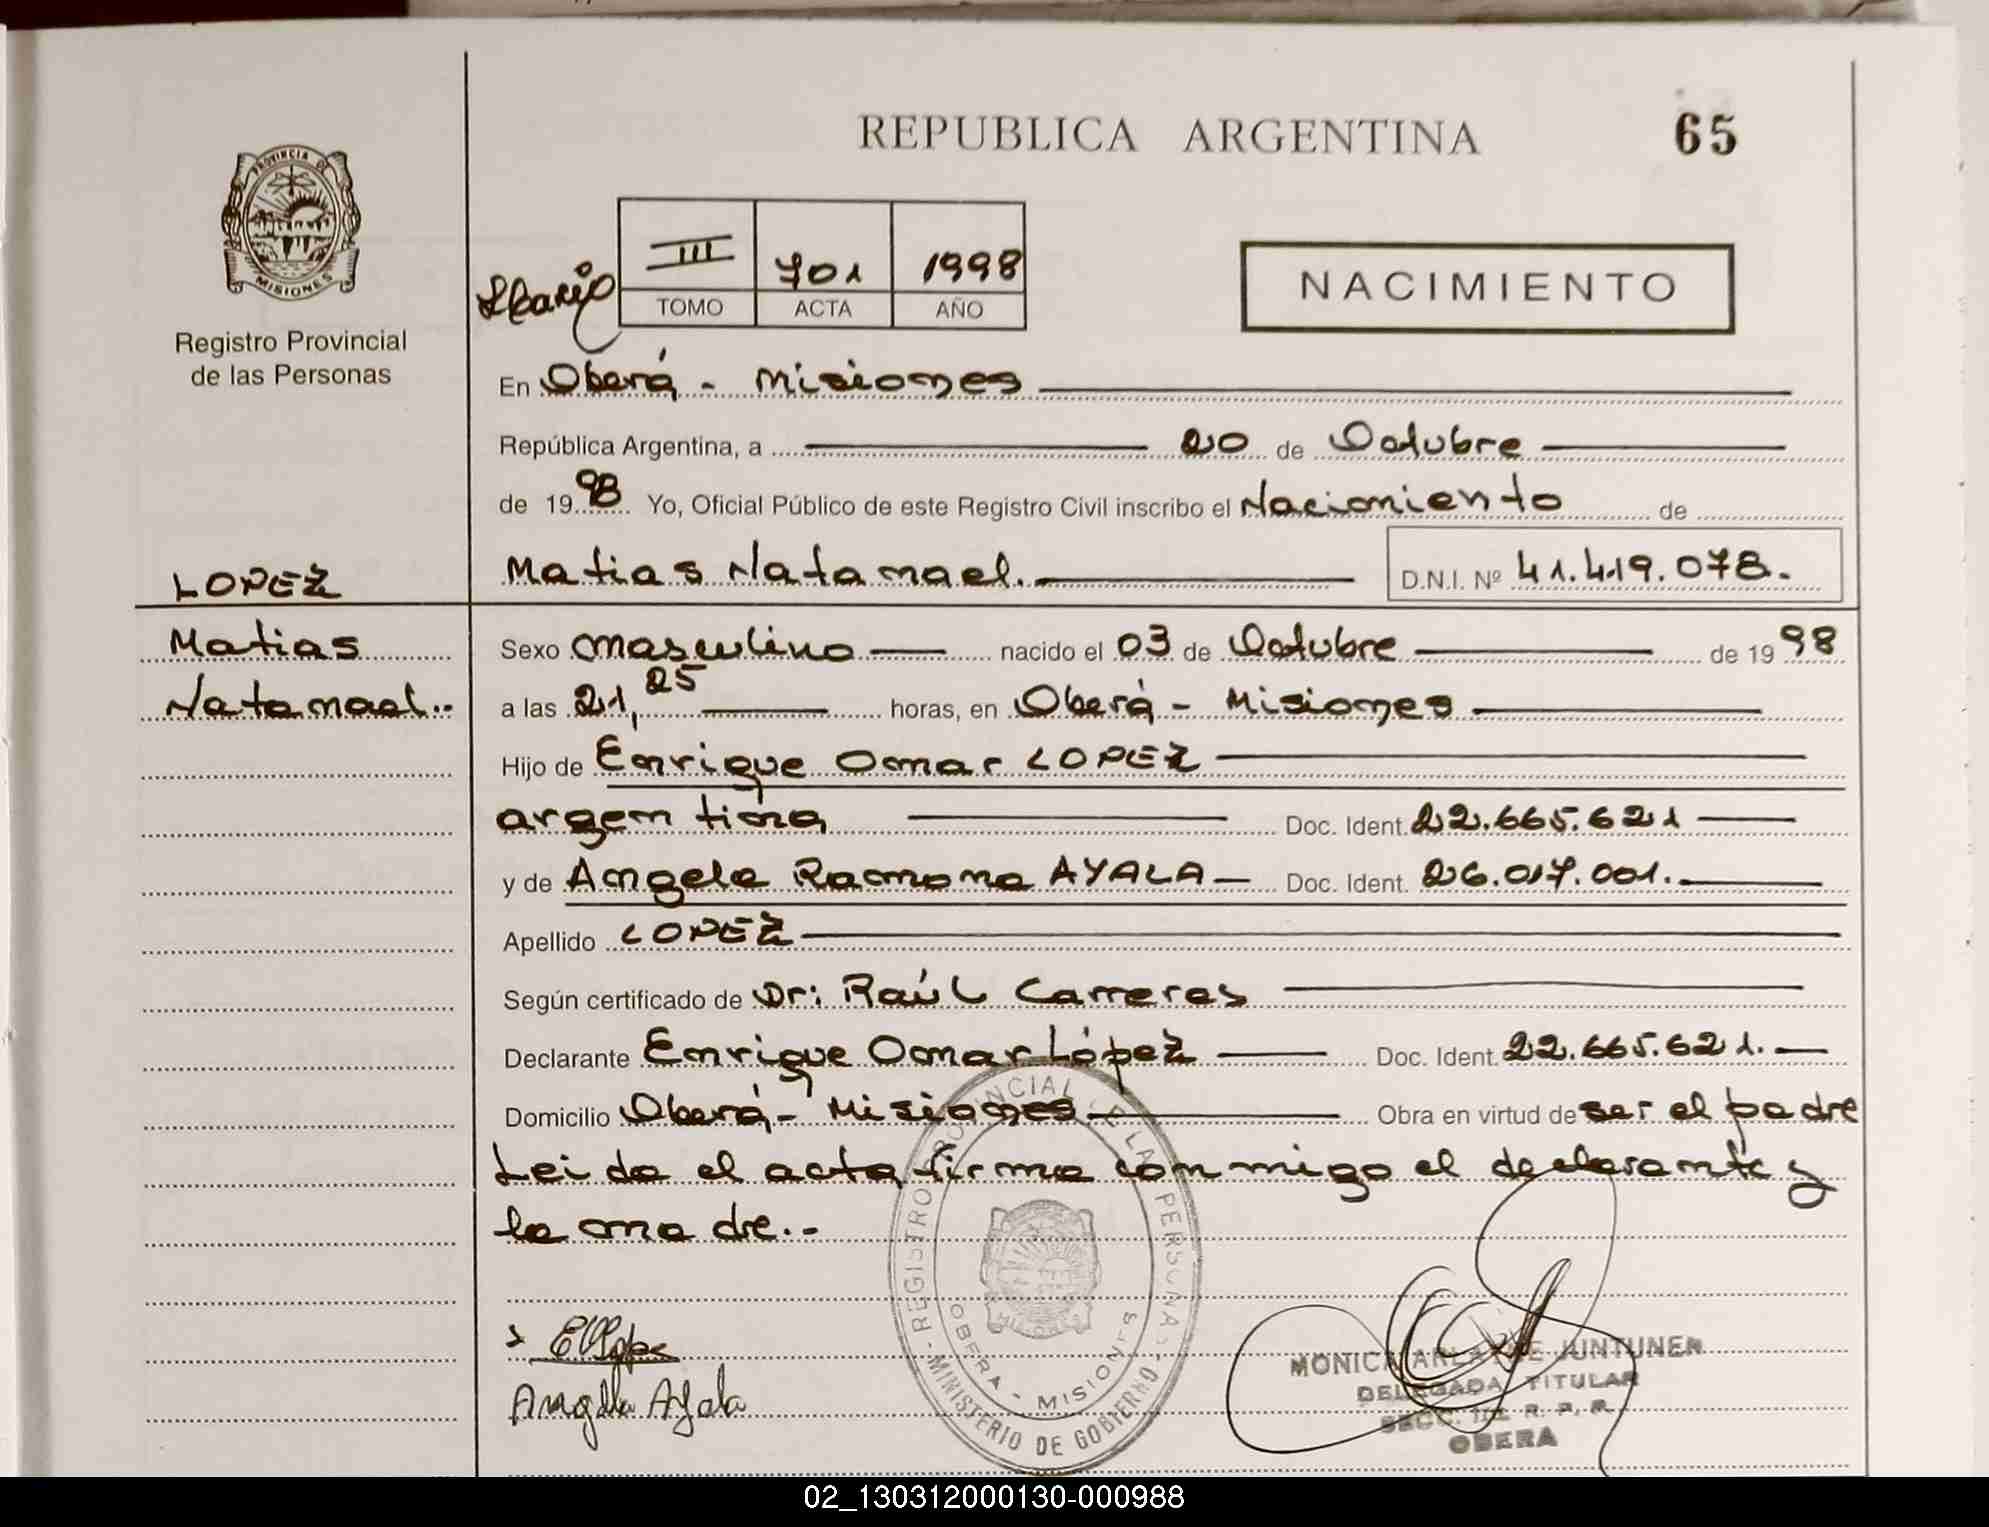 REPUBLICA ARGENTINA
65
PROVINCIA DE
MISIONES
Registro Provincial
de las Personas
III 701 1998
TOMO ACTA AÑO
NACIMIENTO
En Oberá - Misiones
República Argentina, a 20 de Octubre
de 1998 Yo, Oficial Público de este Registro Civil inscribo el Nacimiento de
Matias Natanael. D.N.I. Nº 41.419.078.
LOPEZ
Matias
Natanael.-
Sexo masculino nacido el 03 de Octubre de 1998
a las 21,25 horas, en Oberá - Misiones
Hijo de Enrique Omar LOPEZ
argentina Doc. Ident. 22.665.621
y de Angela Ramona AYALA Doc. Ident. 26.017.001.
Apellido LOPEZ
Según certificado de Dr: Raúl Carreras
Declarante Enrique Omar López Doc. Ident. 22.665.621.
Domicilio Oberá - Misiones Obra en virtud de ser el padre
Leida el acta firma conmigo el declarante y
la madre.-
REGISTRO PROVINCIAL DE LAS PERSONAS
OBERA - MISIONES
MINISTERIO DE GOBIERNO
Angela Ayala
MONICA ARLAINE JUNTUNEN
DELEGADA TITULAR
SECC. R. P. P.
OBERA
02_130312000130-000988